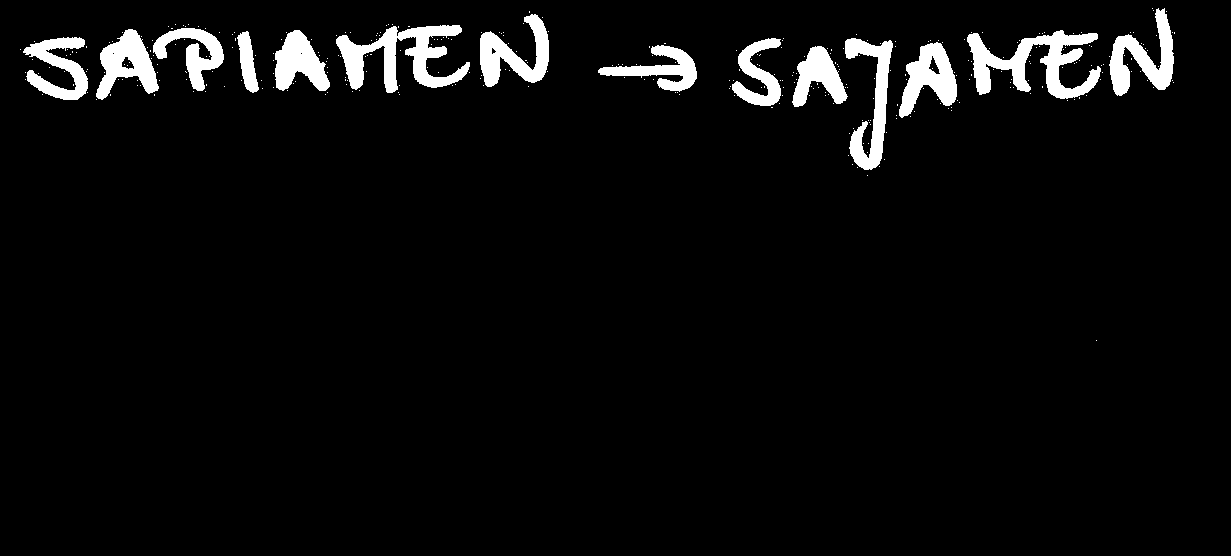 SAPIAMEN → SAJAMEN